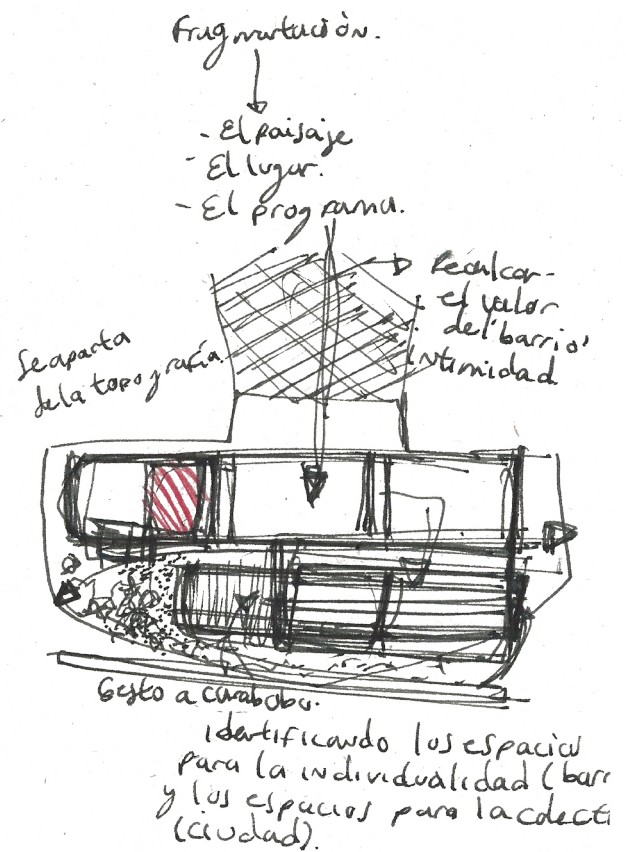 Fragmentación.
- El paisaje
- El lugar.
- El programa.
Recalcar
el valor
del "barrio"
intimidad
Se aparta
de la topografía.
Gesto a Carabobo.
identificando los espacios
para la individualidad (barr
y los espacios para la colecti
(ciudad).